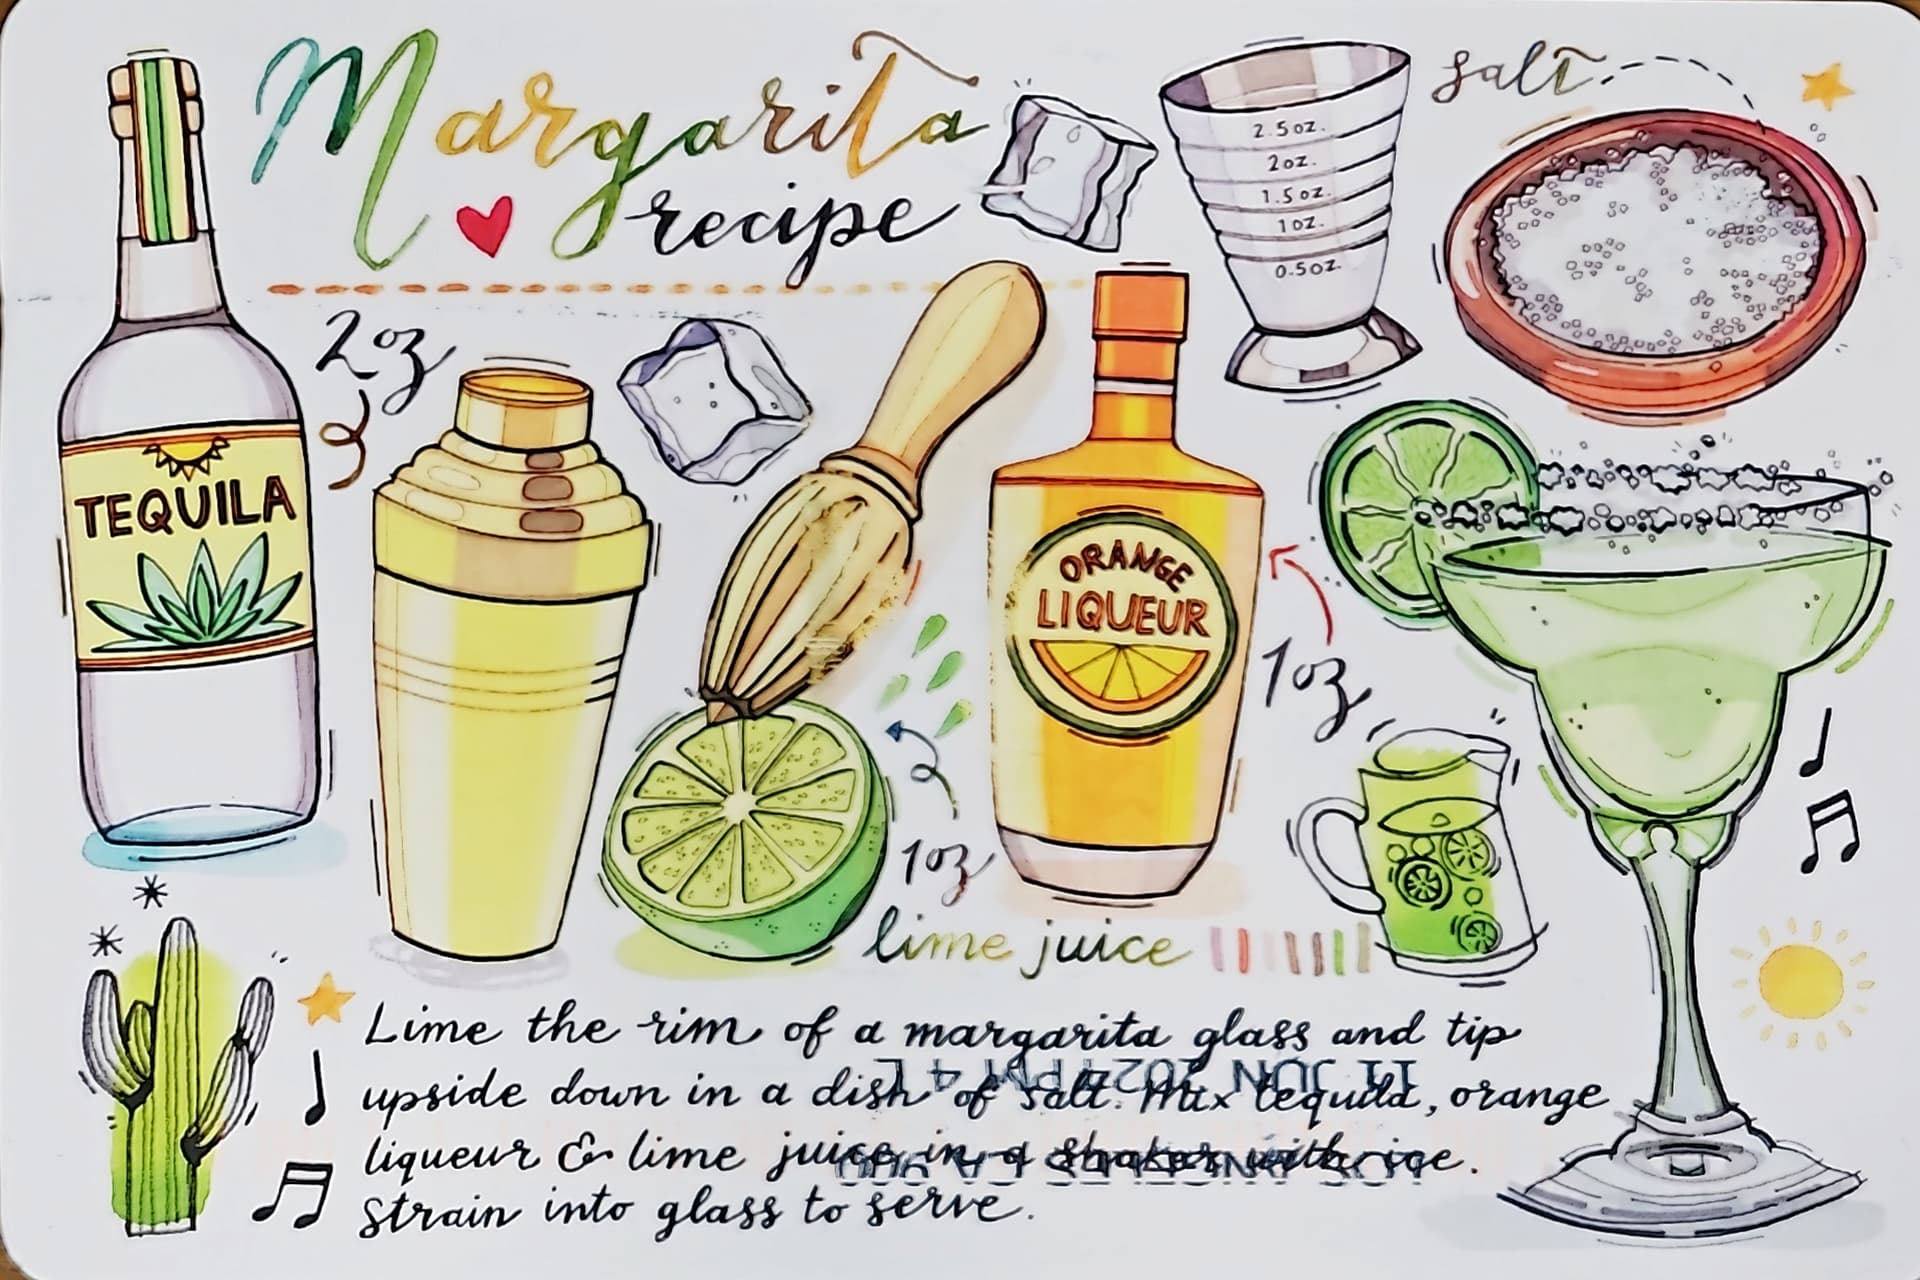 Margarita
recipe
salt
2.5oz.
2oz.
1.5oz.
1oz.
0.5oz.
2oz
TEQUILA
ORANGE
LIQUEUR
1oz
1oz
lime juice
Lime the rim of a margarita glass and tip
upside down in a dish of salt. Mix tequila, orange
liqueur & lime juice in a shaker with ice.
Strain into glass to serve.
11 JUN 2024 PM 4 L
LOS ANGELES CA 900